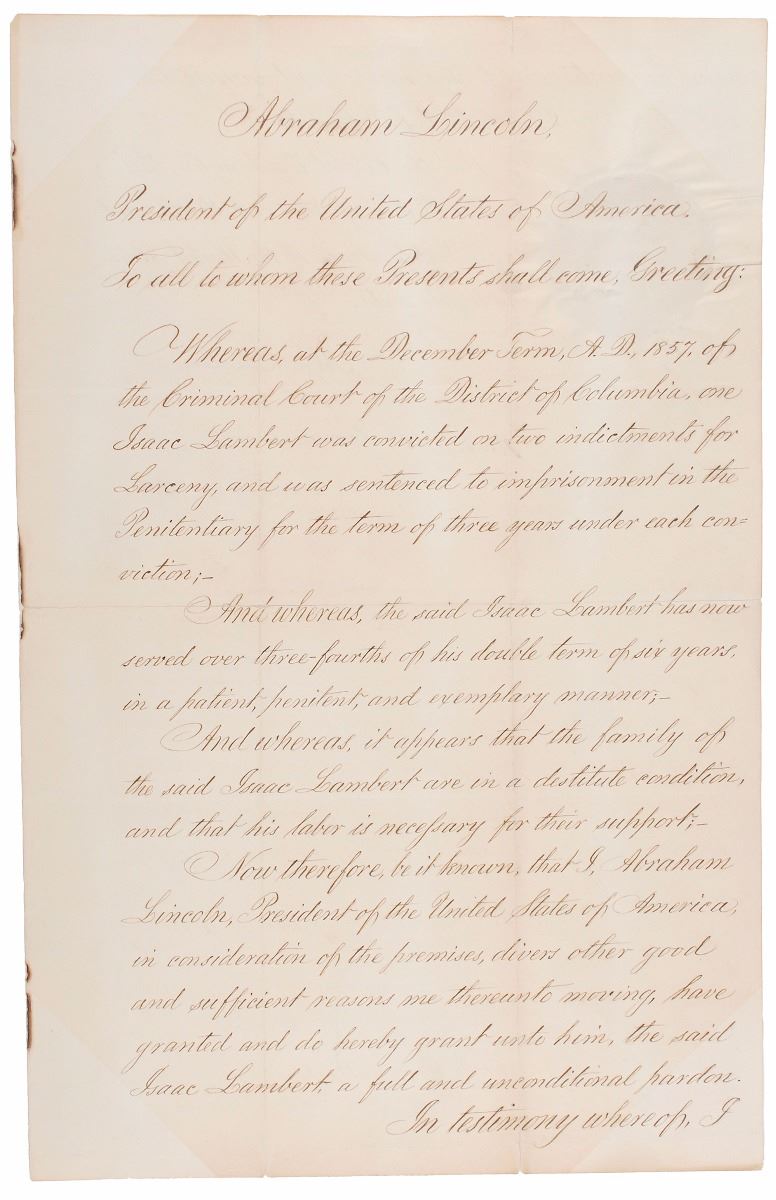 Abraham Lincoln,
President of the United States of America.
To all to whom these Presents shall come, Greeting:
Whereas, at the December Term, A.D., 1857, of
the Criminal Court of the District of Columbia, one
Isaac Lambert was convicted on two indictments for
Larceny, and was sentenced to imprisonment in the
Penitentiary for the term of three years under each con=
viction;–
And whereas, the said Isaac Lambert has now
served over three-fourths of his double term of six years,
in a patient, penitent, and exemplary manner;–
And whereas, it appears that the family of
the said Isaac Lambert are in a destitute condition,
and that his labor is necessary for their support;–
Now therefore, be it known, that I, Abraham
Lincoln, President of the United States of America,
in consideration of the premises, divers other good
and sufficient reasons me thereunto moving, have
granted and do hereby grant unto him, the said
Isaac Lambert, a full and unconditional pardon.
In testimony whereof, I